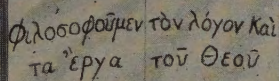 Φιλοσοφοῦμεν τὸν λόγον Καὶ
τα Ἔργα τοῦ Θεοῦ